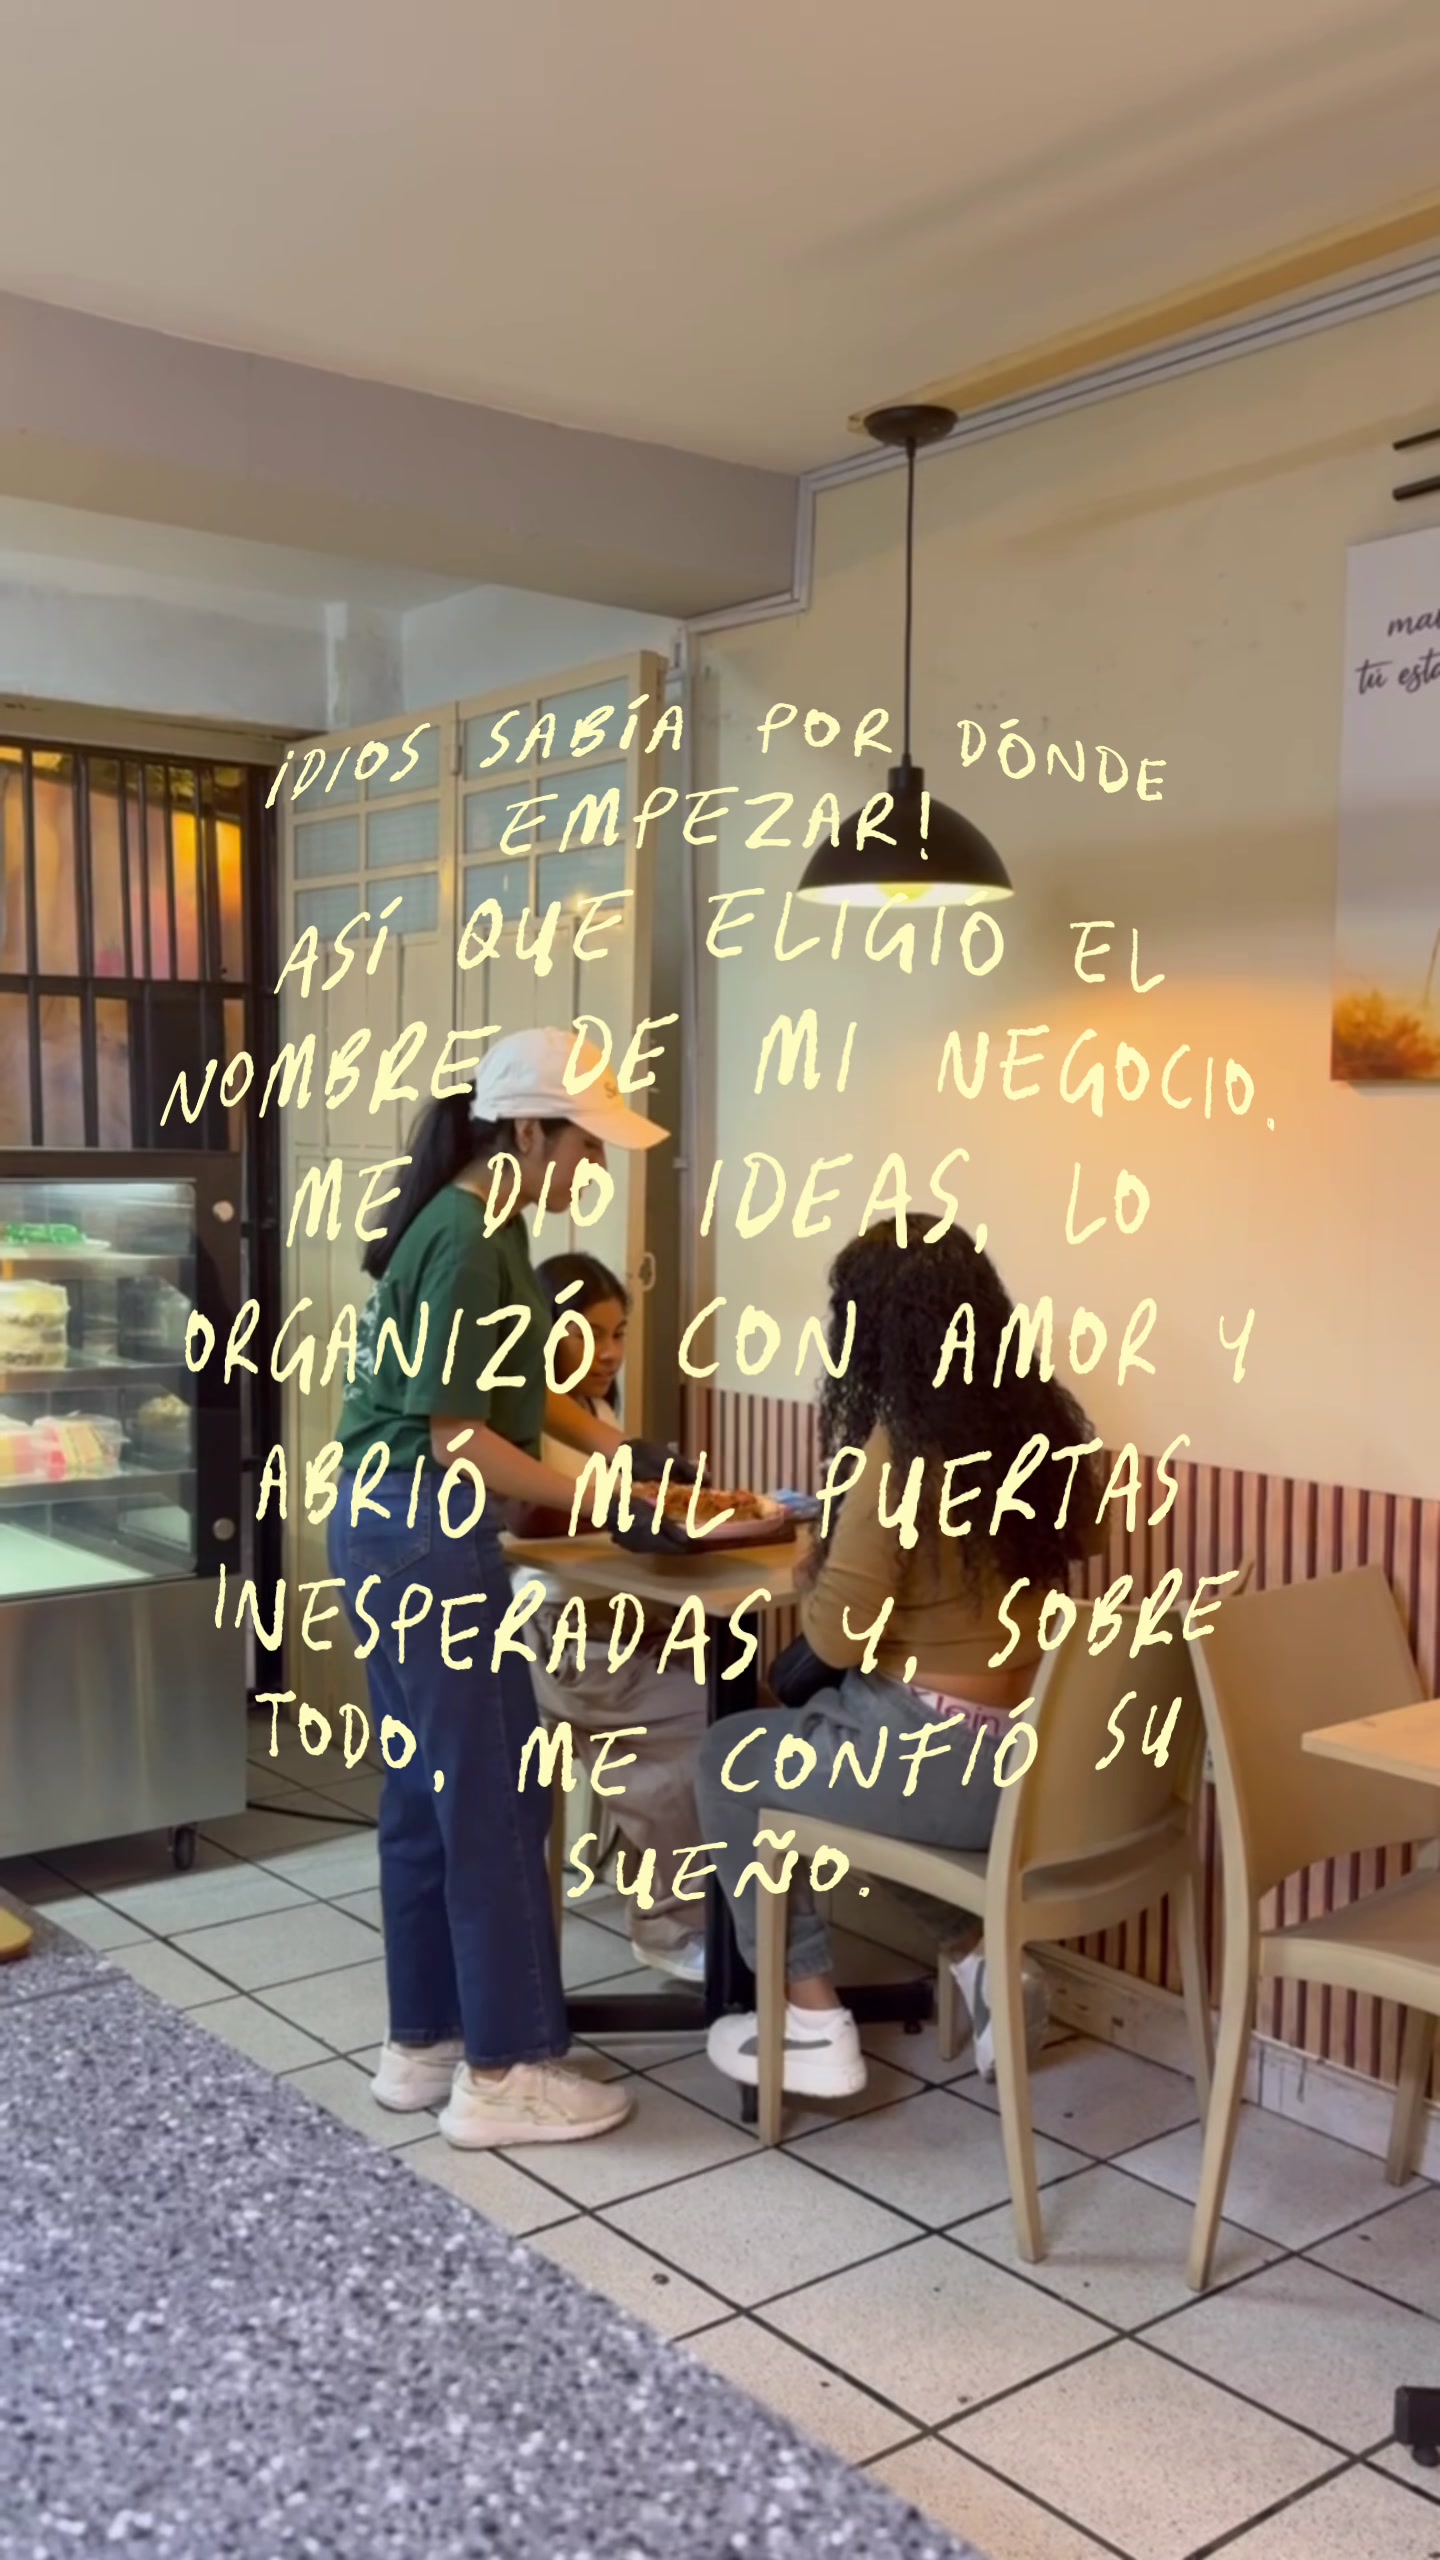 ¡DIOS SABÍA POR DÓNDE
EMPEZAR!
ASÍ QUE ELIGIÓ EL
NOMBRE DE MI NEGOCIO.
ME DIO IDEAS, LO
ORGANIZÓ CON AMOR Y
ABRIÓ MIL PUERTAS
INESPERADAS Y, SOBRE
TODO, ME CONFIÓ SU
SUEÑO.
tú